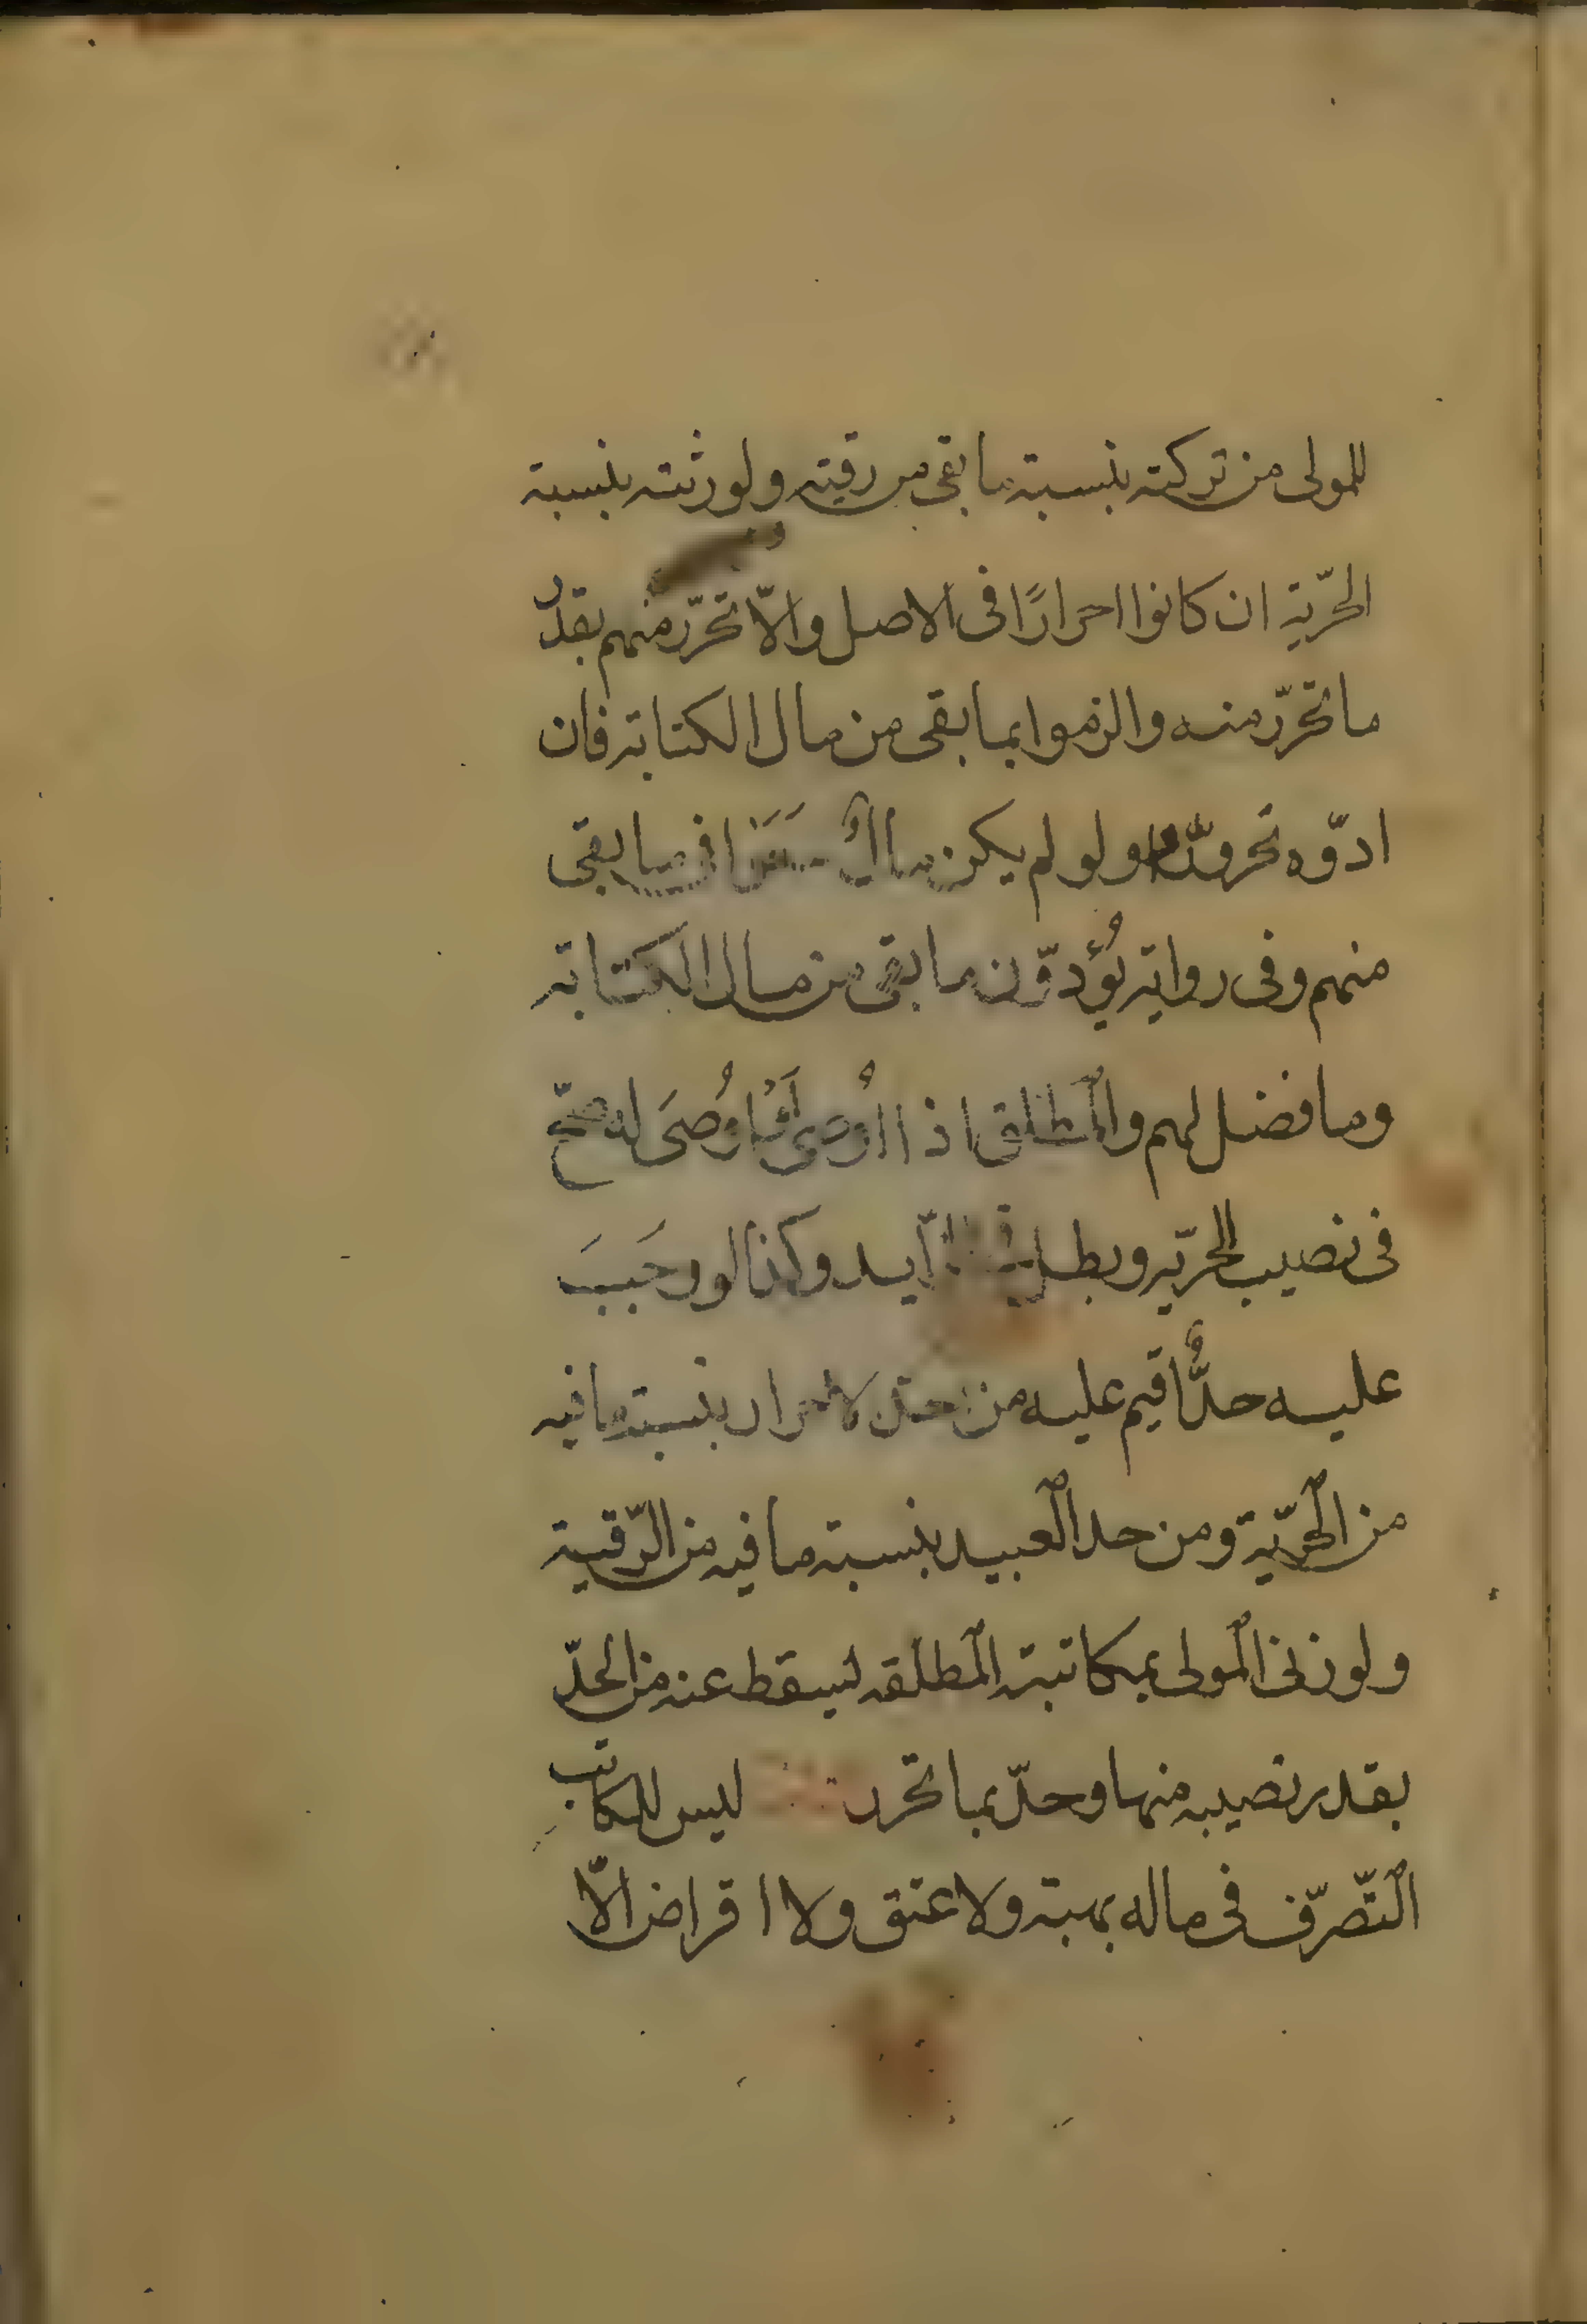 للمولى من تركته بنسبة ما بقى من رقيته ولورثته بنسبة
الحرّية ان كانوا احرارًا فى الاصل والّا تحرّر منهم بقدر
ما تحرّر منه والزموا بما بقى من مال الكتابة فان
ادّوه تحرروا ولو لم يكن مالٌ سَعَوا فيما بقى
منهم وفى رواية يُؤدّون ما بقى من مال الكتابة
وما فضل لهم والمطلق اذا اُوصى اَوْ اُوصَى له صحّ
فى نصيب الحريّه وبطل فى الزايد وكذا لو وجَبَ
عليه حدٌّ اُقيم عليه من حدّ الاحرار بنسبة ما فيه
من الحرّية ومن حد العبيد بنسبة ما فيه من الرّقية
ولو زنى المولى بمكاتبته المطلقه سقط عنه من الحدّ
بقدر نصيبه منها وحدّ بما تحرر ليس للمكاتب
التّصرّف فى ماله بهبة ولا عتق ولا اقراض الّا